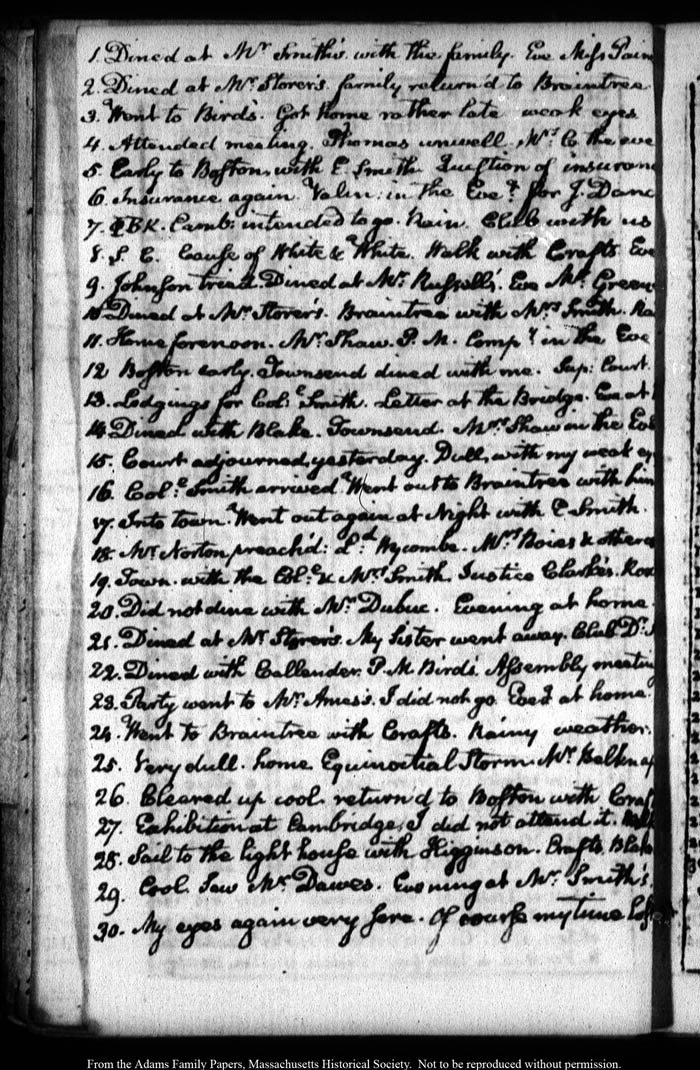 1. Dined at Mr. Smith's with the family. Eve Miss Pain
2. Dined at Mr. Storer's. family return'd to Braintree
3. Went to Bird's. Got home rather late weak eyes
4. Attended meeting. Thomas unwell. Mr. C the eve
5. Early to Boston with E. Smith Question of insuran
6. Insurance again. Valn: in the Eve. for J. Danc
7. ΦBK. Camb: intended to go. Rain. Club with us
8. S. C. Cause of White & White. Walk with Crafts. Eve
9. Johnson tried. Dined at Mr. Russell's. Eve Mr. Green
10. Dined at Mr. Storer's. Braintree with Mrs. Smith. Ra
11. Home forenoon. Mr. Shaw. P. M. Compy. in the Eve
12 Boston early. Townsend dined with me. Sup: Court.
13. Lodgings for Col: Smith. Letter at the Bridge. Eve at
14. Dined with Blake. Townsend. Mrs. Shaw in the
15. Court adjourned, yesterday. Dull, with my weak ey
16. Col: Smith arrived. Went out to Braintree with him
17. Into town. Went out again at Night with E Smith.
18. Mr. Norton preach'd: Ld. Wycombe. Mrs. Boies & others
19. Town. with the Col: & Mrs. Smith Justice Clarke's. Rox
20. Did not dine with Mr. Dubuc. Evening at home.
21. Dined at Mr Storer's. My Sister went away. Club Dr.
22. Dined with Callender. P. M Bird's. Assembly meeting
23. Party went to Mr. Ames's. I did not go. Eveg at home.
24. Went to Braintree with Crafts. Rainy weather.
25. Very dull. home. Equinoctial Storm. Mr. Belknap
26. Cleared up cool. return'd to Boston with Craf
27. Exhibition at Cambridge, I did not attend it.
28. Sail to the light house with Higginson. Crafts, Blake
29. Cool. Saw Mr. Dawes. Evening at Mr. Smith's.
30. My eyes again very sore. Of course my time lost
From the Adams Family Papers, Massachusetts Historical Society. Not to be reproduced without permission.